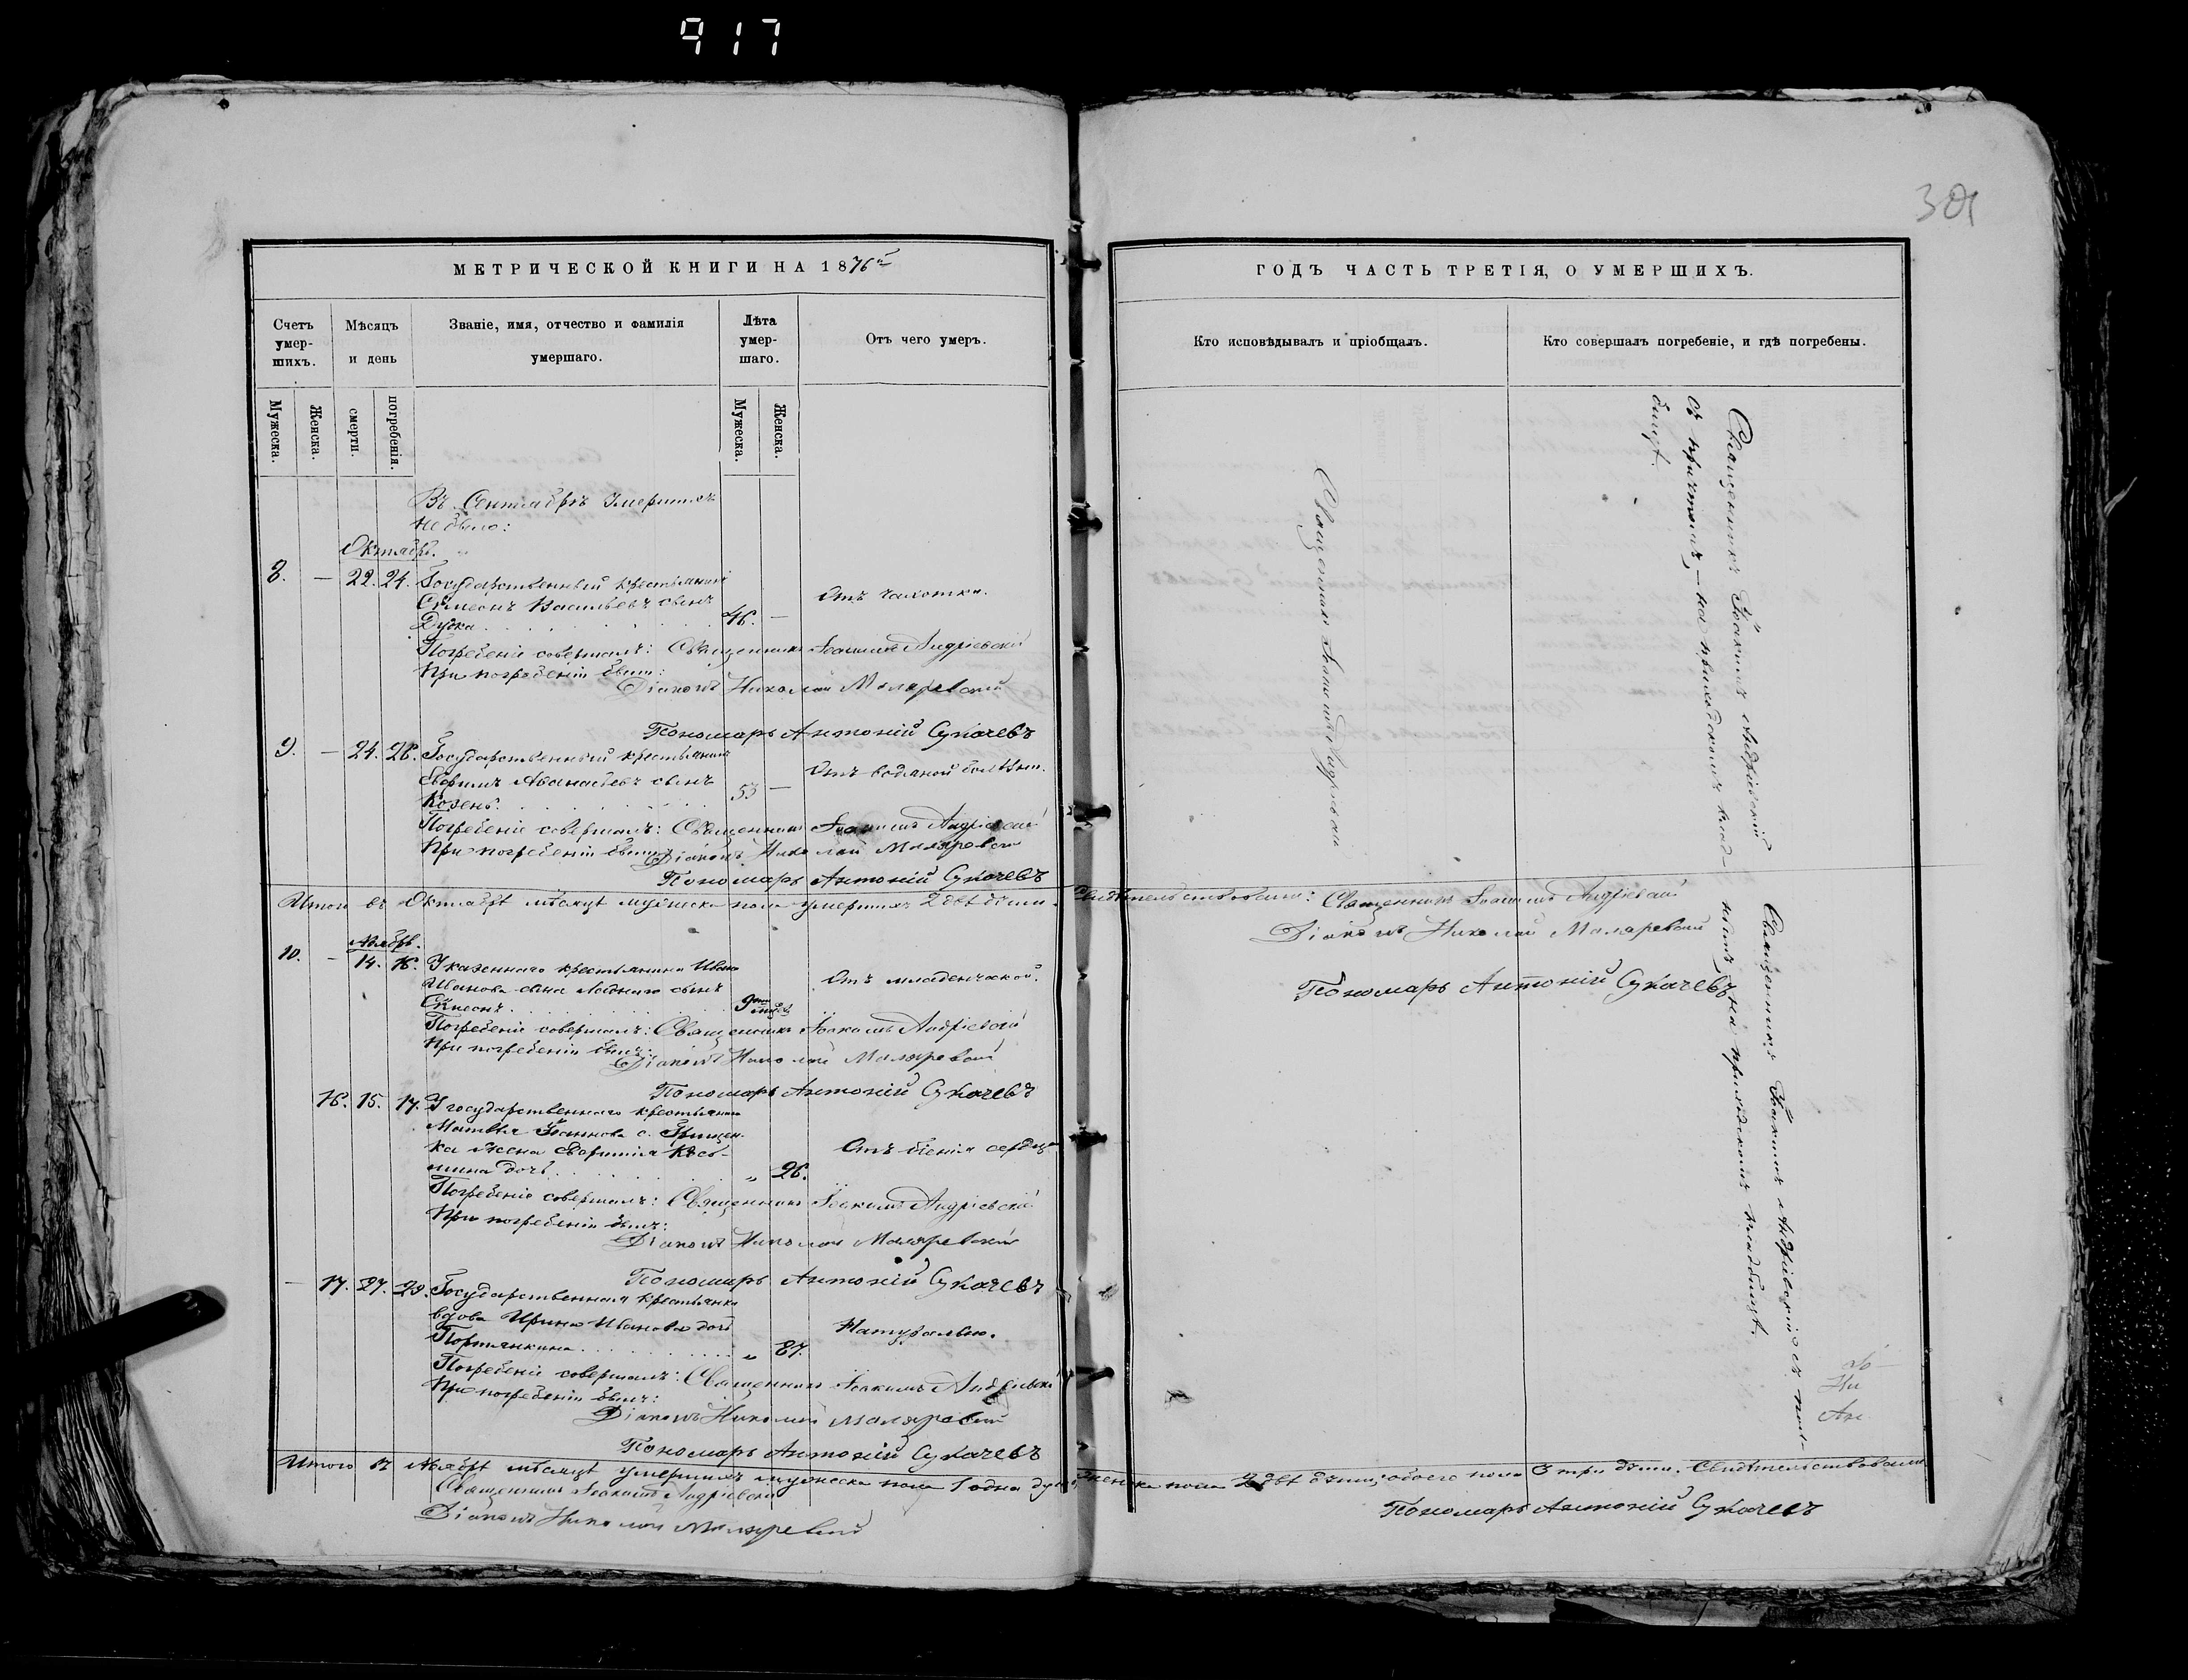 917
301
МЕТРИЧЕСКОЙ КНИГИ НА 1876й
Счетъ умер-шихъ.
Мѣсяцъ и день
Званіе, имя, отчество и фамилія умершаго.
Лѣта умер-шаго.
Отъ чего умеръ.
Мужеска.
Женска.
смерти.
погребенія.
Мужеска.
Женска.
Въ Сентябрѣ Умершихъ
не было:
Октябрь.
8. — 22. 24. Государственный крестьянинъ
Сѵмеонъ Васильевъ сынъ Отъ чахотки.
Дудка 46. —
Погребеніе совершалъ: Священникъ Іоакимъ Андріевскій
При погребеніи были:
Діаконъ Николай Маляревскій
Пономарь Антоній Сукачевъ
9. — 24. 26. Государственный крестьянинъ
Евфимъ Аѳанасіевъ сынъ Отъ водяной болѣзни.
Козенъ. 53 —
Погребеніе совершалъ: Священникъ Іоакимъ Андріевскій
При погребеніи были:
Діаконъ Николай Маляревскій
Пономарь Антоній Сукачевъ
Итого въ Октябрѣ мѣсяцѣ мужеска пола умершихъ 2 двѣ души.
Ноябрь.
10. — 14. 16. У казеннаго крестьянина Ивана
Иванова сына Ладнаго сынъ Отъ младенческой.
Сѵмеонъ.
Погребеніе совершалъ: Священникъ Іоакимъ Андріевскій
При погребеніи были:
Діаконъ Николай Маляревскій
Пономарь Антоній Сукачевъ
16. 15. 17. У государственнаго крестьянина
Матвѣя Іоаннова с. Грищен-
ка жена Евфимія Кось- Отъ біенія сердца
мина дочь. „ 26.
Погребеніе совершалъ: Священникъ Іоакимъ Андріевскій
При погребеніи былъ:
Діаконъ Николай Маляревскій
Пономарь Антоній Сукачевъ
— 17. 27. 29. Государственная крестьянка
вдова Ирина Иванова дочь Натурально.
Портянкина. „ 87.
Погребеніе совершалъ: Священникъ Іоакимъ Андріевскій
При погребеніи былъ:
Діаконъ Николай Маляревскій
Пономарь Антоній Сукачевъ
Итого въ Ноябрѣ мѣсяцѣ умершихъ мужеска пола 1 одна душа,
Священникъ Іоакимъ Андріевскій
Діаконъ Николай Маляревскій
ГОДЪ ЧАСТЬ ТРЕТІЯ, О УМЕРШИХЪ.
Кто исповѣдывалъ и пріобщалъ.
Кто совершалъ погребеніе, и гдѣ погребены.
Священникъ Іоакимъ Андріевскій
Священникъ Іоакимъ Андріевскій
съ причтомъ, — на приходскомъ клад-
бищѣ.
Свидѣтельствовали: Священникъ Іоакимъ Андріевскій
Діаконъ Николай Маляревскій
Пономарь Антоній Сукачевъ
Священникъ Іоакимъ Андріевскій съ
на приходскомъ кладбищѣ.
Ни
Ан
женска пола 2 двѣ души; обоего пола 3 три души. Свидѣтельствовали
Пономарь Антоній Сукачевъ